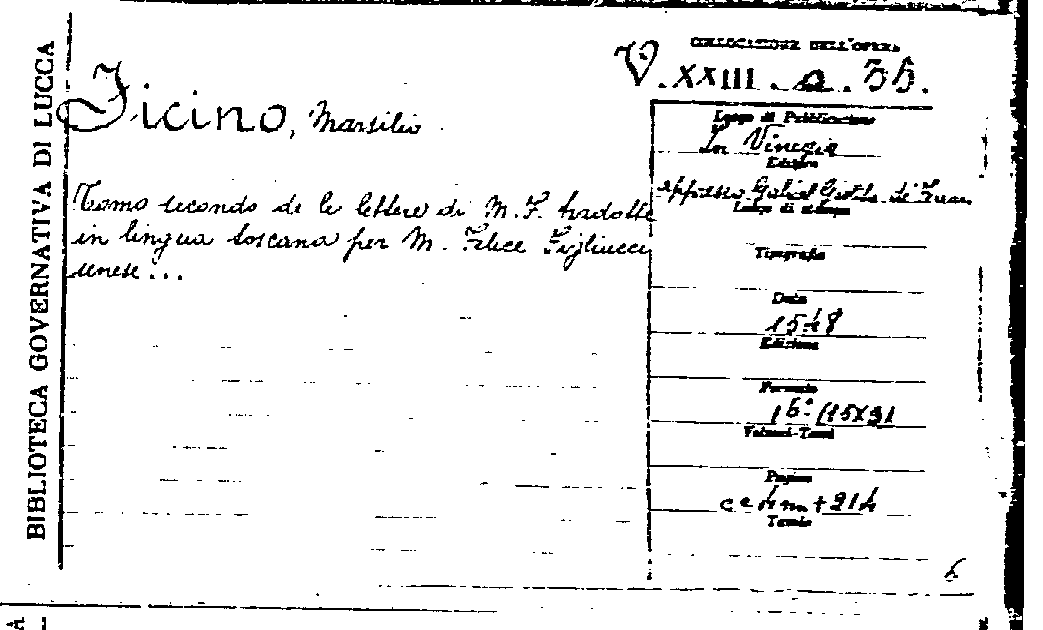 BIBLIOTECA GOVERNATIVA DI LUCCA
Ficino, Marsilio.
Tomo secondo de le lettere di M. F. tradotte
in lingua toscana per M. Felice Figliucci
senese ...
COLLOCAZIONE DELL'OPERA
V. XXIII. a. 35.
Luogo di Pubblicazione
In Vinegia
Editore
appresso Gabriel
Luogo di stampa
Tipografia
Data
1548
Edizione
Formato
16º (15X9)
Volumi-Tomi
Pagine
+214
Tavole